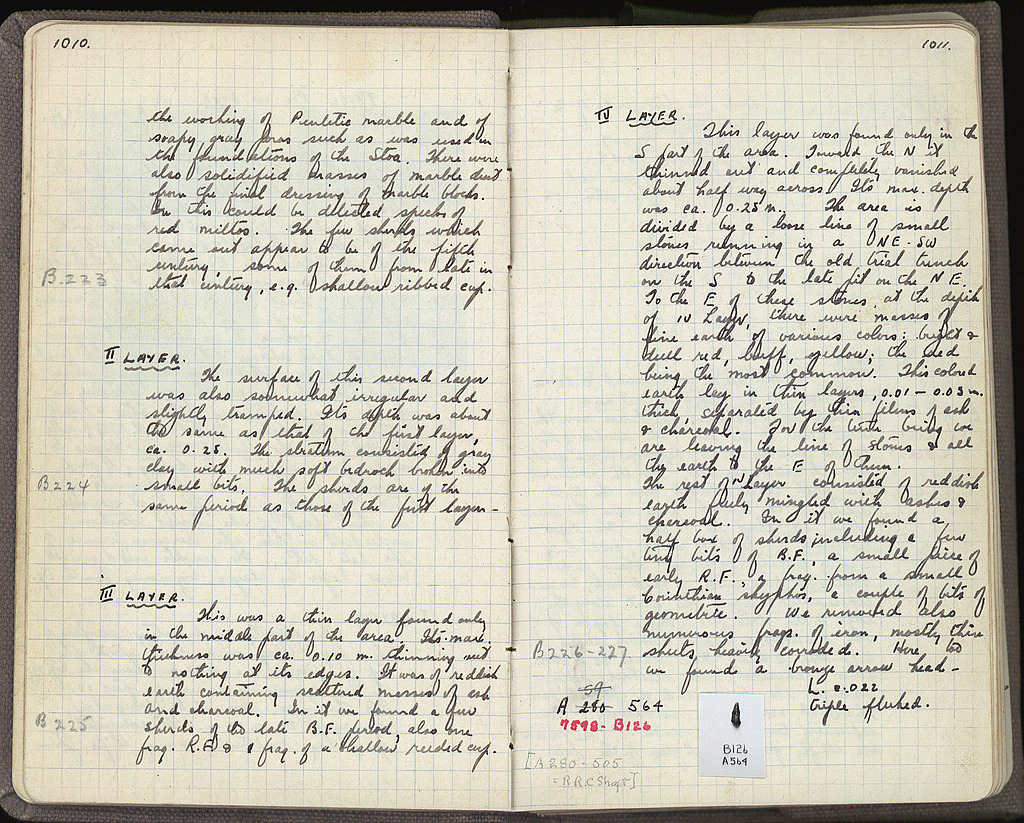 1010.
the working of Pentelic marble and of
soapy gray poros such as was used in
the foundations of the Stoa. There were
also solidified masses of marble dust
from the final dressing of marble blocks.
In this could be detected specks of
red miltos. The few sherds which
came out appear to be of the fifth
century, some of them from late in
B 223
that century, e.g. shallow ribbed cup.
II LAYER.
The surface of this second layer
was also somewhat irregular and
slightly tramped. Its depth was about
the same as that of the first layer,
ca. 0.25. The stratum consisted of gray
clay with much soft bedrock broken into
B224
small bits. The sherds are of the
same period as those of the first layer-
III LAYER.
This was a thin layer found only
in the middle part of the area. Its max.
thickness was ca. 0.10 m. thinning out
to nothing at its edges. It was of reddish
earth containing scattered masses of ash
and charcoal. In it we found a few
B 225
sherds of the late B.F. period, also one
frag. R.F. & 1 frag. of a shallow reeded cup.
1011.
IV LAYER.
This layer was found only in the
S part of the area. Toward the N it
thinned out and completely vanished
about half way across. Its max. depth
was ca. 0.25 m. The area is
divided by a loose line of small
stones running in a NE-SW
direction between the old trial trench
on the S to the late pit on the NE.
To the E of these stones, at the depth
of IV Layer, there were masses of
fine earth of various colors; bright &
dull red, buff, yellow; the red
being the most common. This colored
earth lay in thin layers, 0.01 - 0.03 m.
thick, separated by thin films of ash
& charcoal. For the time being we
are leaving the line of stones & all
the earth to the E of them.
The rest of IV Layer consisted of reddish
earth freely mingled with ashes &
charcoal. In it we found a
half box of sherds, including a few
tiny bits of B.F., a small piece of
early R.F., a frag. from a small
Corinthian skyphos, a couple of bits of
geometric. We removed also
numerous frags. of iron, mostly thin
B226-227
sheets, heavily corroded. Here, too
we found a bronze arrow head-
L. 0.022
triple fluked.
59
A 280 564
7598- B126
[A280-505
= R.R.C Shaft]
B126
A564